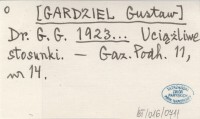 o
[GARDZIEL Gustaw]
Dr. G. G. 1923... Uciążliwe
stosunki. — Gaz. Podh. 11,
nr 14.